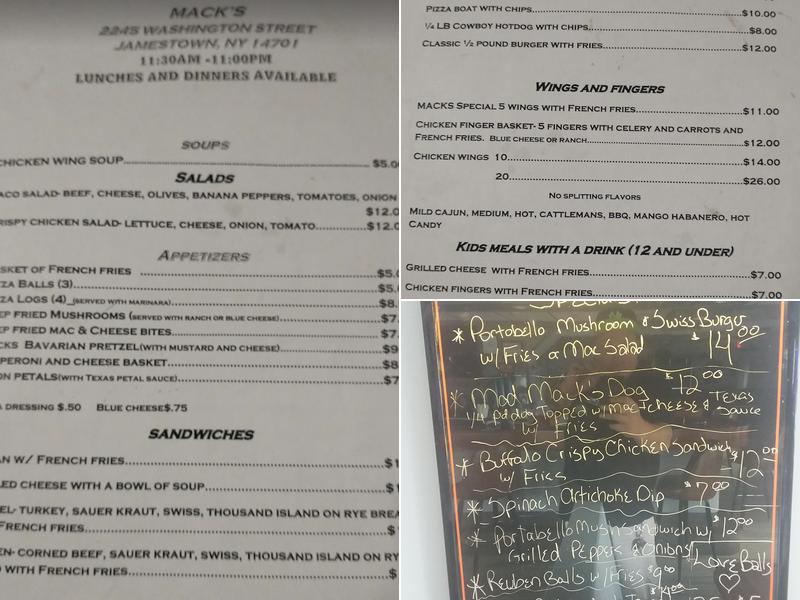 MACK'S
2245 WASHINGTON STREET
JAMESTOWN, NY 14701
11:30AM -11:00PM
LUNCHES AND DINNERS AVAILABLE
SOUPS
CHICKEN WING SOUP $5.0
SALADS
ACO SALAD- BEEF, CHEESE, OLIVES, BANANA PEPPERS, TOMATOES, ONION
$12.0
RISPY CHICKEN SALAD- LETTUCE, CHEESE, ONION, TOMATO $12.0
APPETIZERS
SKET OF FRENCH FRIES $5.0
ZA BALLS (3) $5.
ZA LOGS (4) (SERVED WITH MARINARA) $8.
EP FRIED MUSHROOMS (SERVED WITH RANCH OR BLUE CHEESE) $7.
EP FRIED MAC & CHEESE BITES $7
CKS BAVARIAN PRETZEL(WITH MUSTARD AND CHEESE) $9
PERONI AND CHEESE BASKET $8
ON PETALS(WITH TEXAS PETAL SAUCE) $7
A DRESSING $.50 BLUE CHEESE$.75
SANDWICHES
AN W/ FRENCH FRIES $1
LED CHEESE WITH A BOWL OF SOUP $1
EL- TURKEY, SAUER KRAUT, SWISS, THOUSAND ISLAND ON RYE BREA
FRENCH FRIES $
EN- CORNED BEEF, SAUER KRAUT, SWISS, THOUSAND ISLAND ON RY
WITH FRENCH FRIES $
PIZZA BOAT WITH CHIPS $10.00
¼ LB COWBOY HOTDOG WITH CHIPS $8.00
CLASSIC ½ POUND BURGER WITH FRIES $12.00
WINGS AND FINGERS
MACKS SPECIAL 5 WINGS WITH FRENCH FRIES $11.00
CHICKEN FINGER BASKET- 5 FINGERS WITH CELERY AND CARROTS AND
FRENCH FRIES. BLUE CHEESE OR RANCH $12.00
CHICKEN WINGS 10 $14.00
20 $26.00
NO SPLITTING FLAVORS
MILD CAJUN, MEDIUM, HOT, CATTLEMANS, BBQ, MANGO HABANERO, HOT
CANDY
KIDS MEALS WITH A DRINK (12 AND UNDER)
GRILLED CHEESE WITH FRENCH FRIES $7.00
CHICKEN FINGERS WITH FRENCH FRIES $7.00
* Portabello Mushroom & Swiss Burger
w/ Fries or Mac Salad $14.00
* Mad Mack's Dog $12.00
1/4 pd dog Topped w/ Mac & Cheese & Texas Sauce
w/ Fries
* Buffalo Crispy Chicken Sandwich $12.00
w/ Fries
* Spinach Artichoke Dip $7.00
* Portabello Mush Sandwich w/ $12.00
Grilled Peppers & Onions
* Reuben Balls w/ Fries $9.00
Love Balls